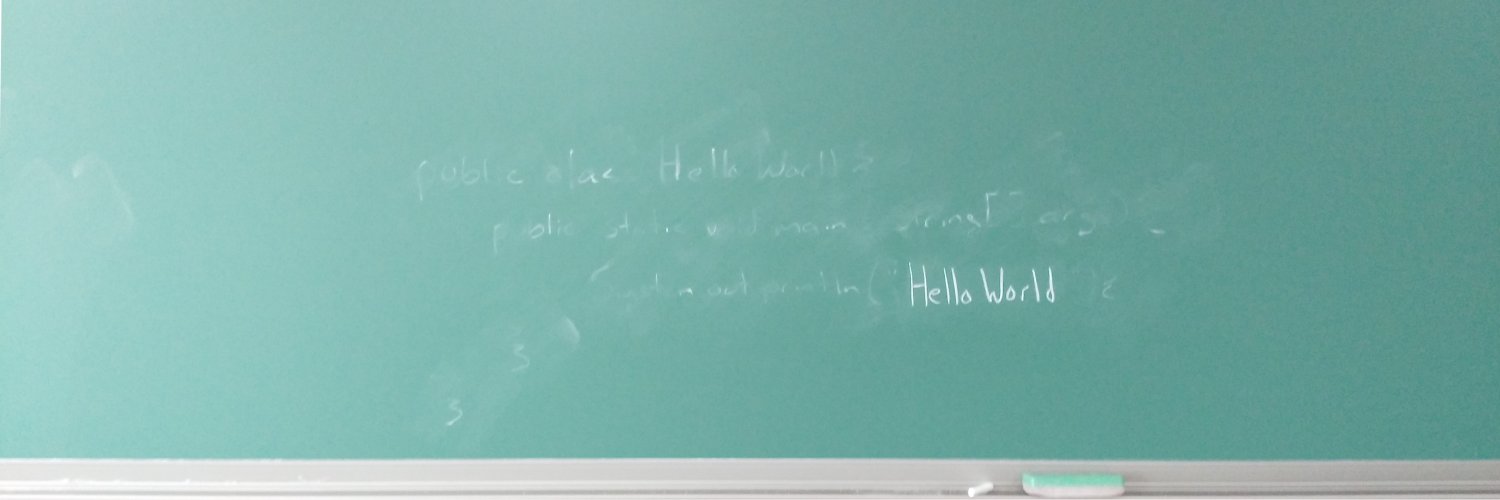 public clas Hello World {
public static void main string[] args) {
system out println ("Hello World");
}
}